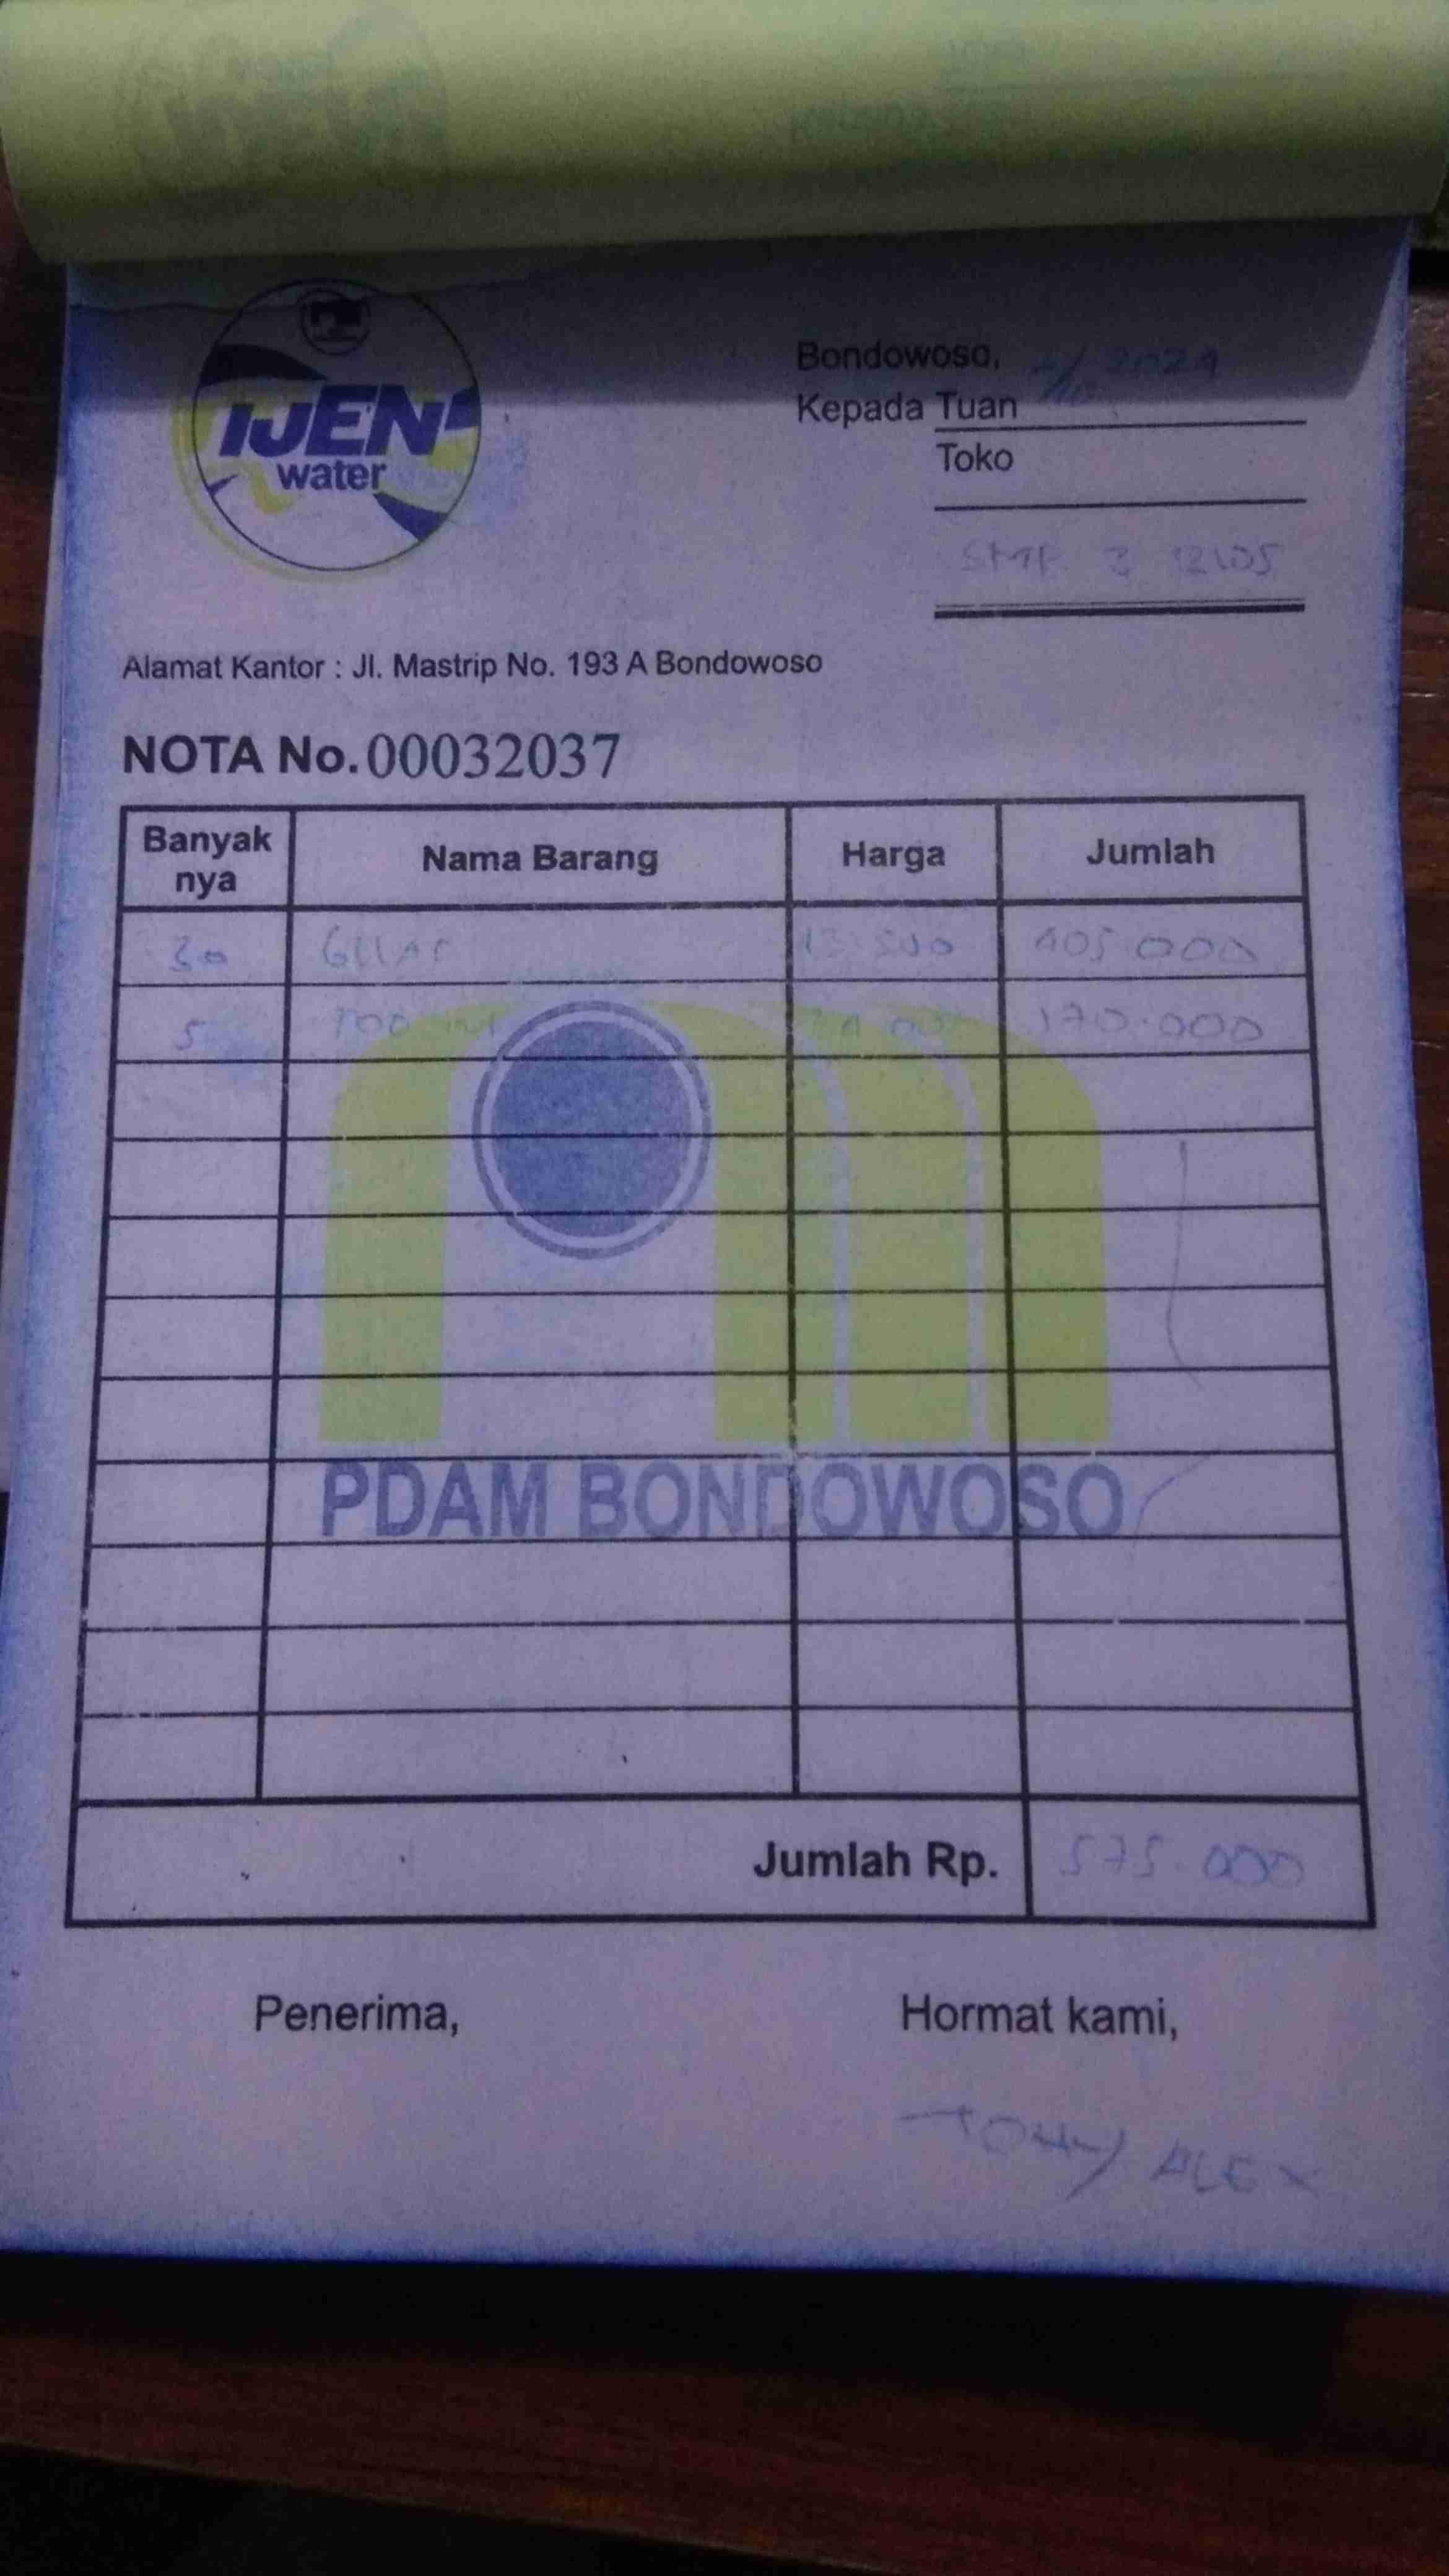 IJEN
water
Bondowoso, 2024
Kepada Tuan
Toko
SMP 3
Alamat Kantor : Jl. Mastrip No. 193 A Bondowoso
NOTA No. 00032037
Banyak nya Nama Barang Harga Jumlah
30 GELAS 13.500 405.000
5 170.000
PDAM BONDOWOSO
Jumlah Rp. 575.000
Penerima, Hormat kami,
TONY ALEX